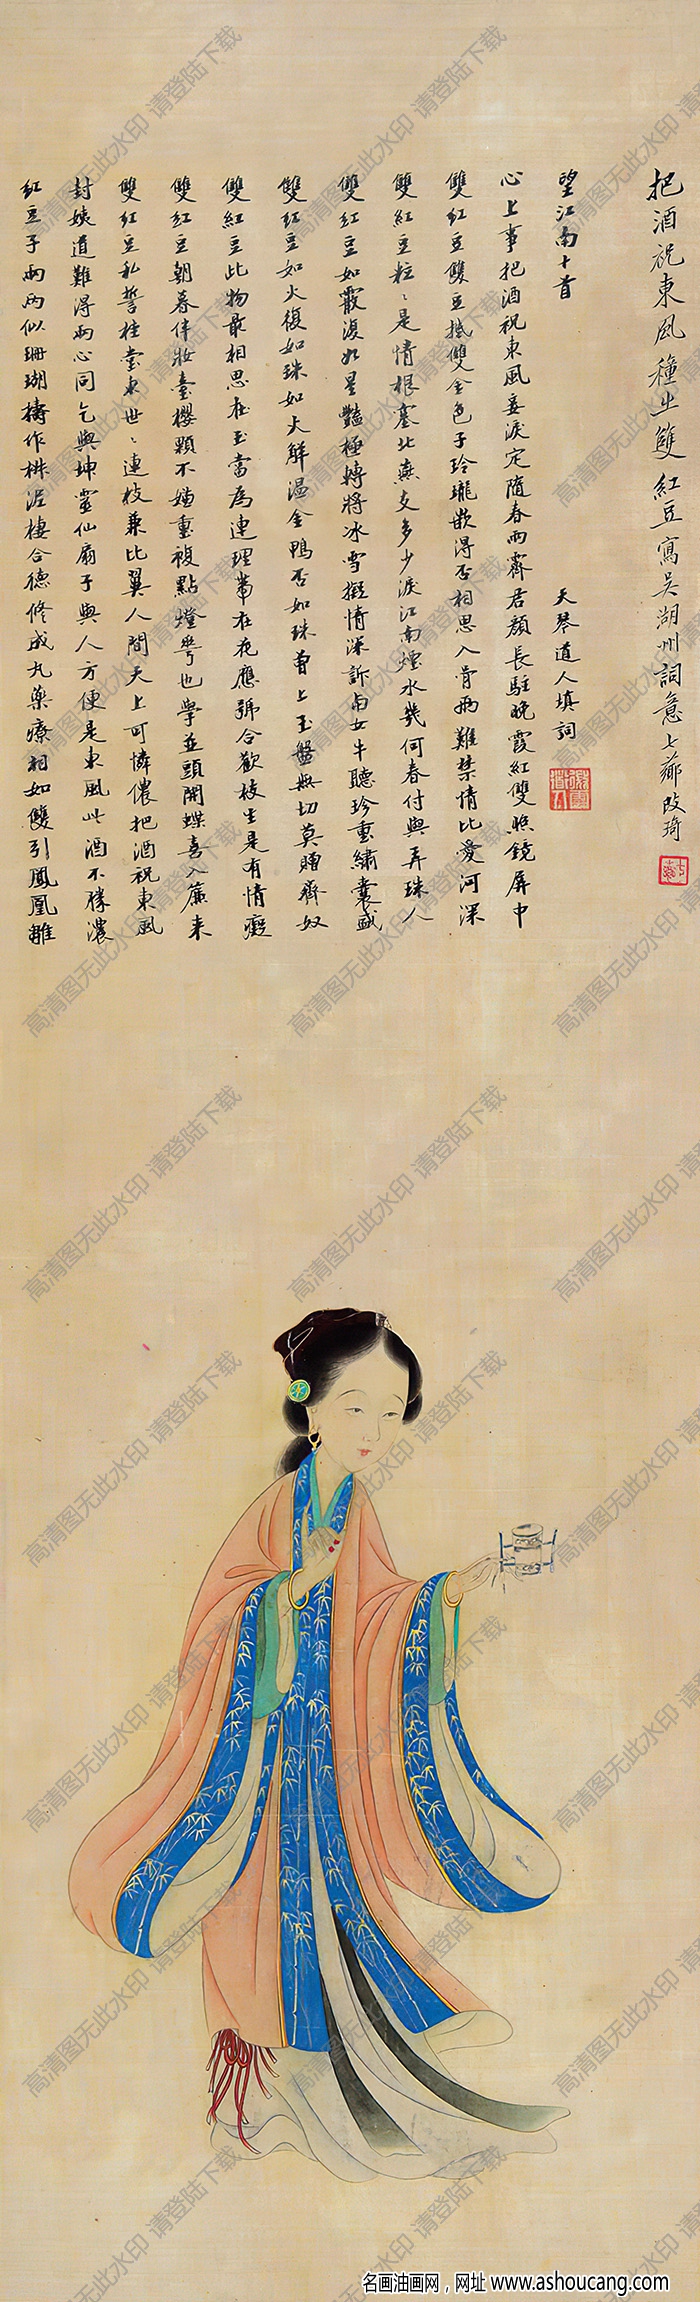 把酒祝東風種出雙紅豆寫吳湖州詞意七薌改琦
望江南十首
天琴道人填詞
心上事把酒祝東風妾淚定隨春雨霽君顏長駐晚霞紅雙照鏡屏中
雙紅豆雙豆雙金色子玲瓏嵌得否相思入骨兩難禁情比愛河深
雙紅豆粒〻是情根塞北燕支多少淚江南煙水幾何春付與弄珠人
雙紅豆如霰復如星豔極轉將冰雪擬情深訴与女牛聽珍重繡囊盛
雙紅豆如火復如珠如火解溫金鴨否如珠曾上玉盤無切莫贈齊奴
雙紅豆此物最相思在玉當為連理帶在花應號合歡枝生是有情癡
雙紅豆朝暮伴妝臺櫻顆不嫌重複點燈花也學並頭開蝶喜入簾来
雙紅豆私誓堂東世〻連枝兼比翼人間天上可憐儂把酒祝東風
封姨道難得兩心同乞與坤靈仙扇子與人方便是東風此酒不勝濃
紅豆子兩兩似珊瑚擣作椒泥棲合德修成丸藥療相如雙引鳳凰雛
高清图无此水印 请登陆下载
名画油画网，网址 www.ashoucang.com